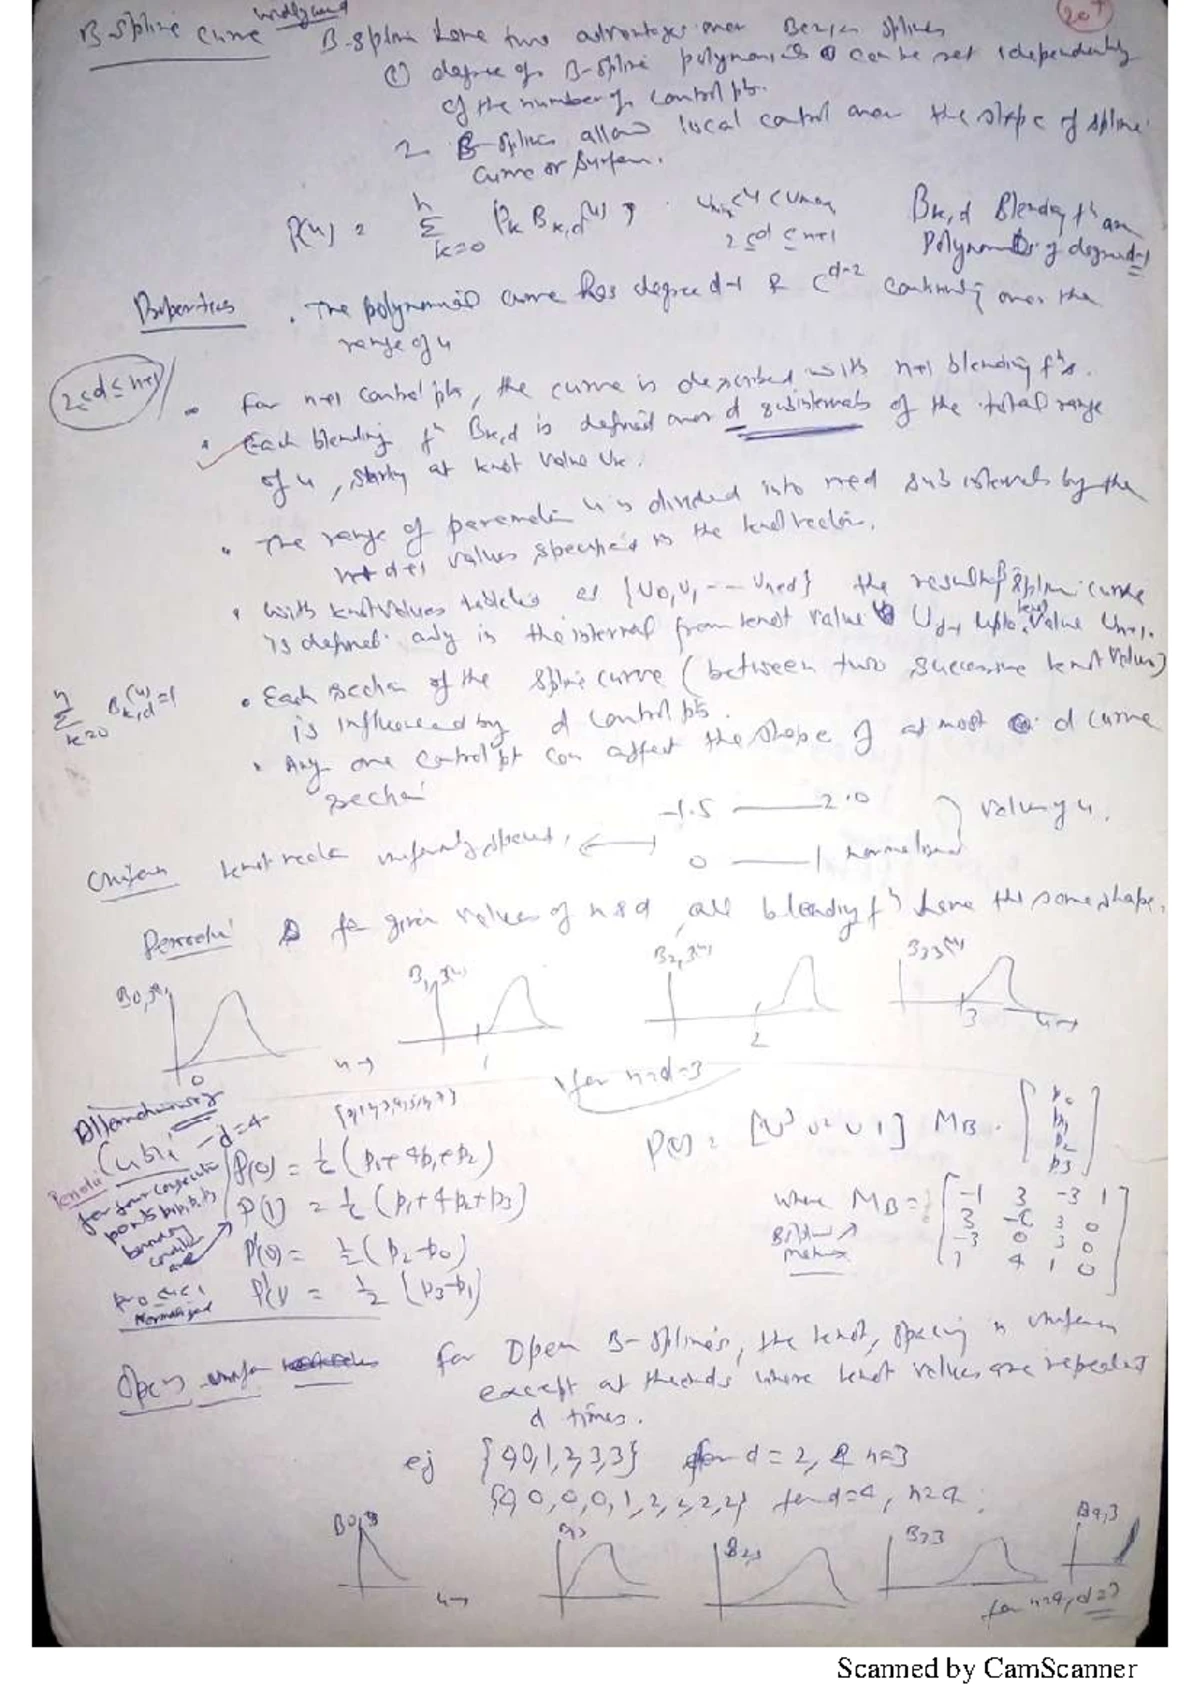 B-Spline curve widely used B-Spline have two advantages over Bezier Splines
(1) degree of B-Spline polynomials can be set idependently
of the number of control pts.
2 B-Splines allow local control over the shape of spline
curve or surface.
P(u) = n Σ k=0 Pk Bk,d(u), umin ≤ u ≤ umax Bk,d Blending fn are
2 ≤ d ≤ n+1 Polynomials of degree d-1
Properties . The polynomial curve has degree d-1 & C d-2 continuity over the
range of u
2≤d≤n+1
• For n+1 control pts, the curve is described with n+1 blending fns.
• Each blending fn Bk,d is defined over d subintervals of the total range
of u, starting at knot value uk.
• The range of parameter u is divided into n+d subintervals by the
n+d+1 values specified in the knot vector.
• with knot values labeled as {u0, u1 --- un+d} the resulting spline curve
is defined only in the interval from knot value ud-1 upto knot value un+1.
n Σ k=0 Bk,d(u)=1
• Each section of the spline curve (between two successive knot values)
is influenced by d control pts.
• Any one control pt can affect the shape of at most d curve
section
Uniform knot vector uniformly spaced, -1.5 —— 2.0 values of u.
0 —— 1 normalised
Periodic for given values of n & d all blending fn have the same shape.
B0,3(u) B1,3(u) B2,3(u) B3,3(u)
0 u→ 1 2 3 u→
for n=d=3
Cubic - d=4
Periodic
for four consecutive
points
boundary
conditions
are
Normalized
P(0) = 1/6 (p0+4p1+p2)
P(1) = 1/6 (p1+4p2+p3)
P'(0) = 1/2 (p2-p0)
P'(1) = 1/2 (p3-p1)
P(u) = [u3 u2 u 1] MB . [p0 p1 p2 p3]
where MB = 1/6 [-1 3 -3 1
B-Spline Matrix 3 -6 3 0
-3 0 3 0
1 4 1 0]
Open uniform For Open B-Splines, the knot spacing is uniform
except at the ends where knot values are repeated
d times.
eg {0,0,1,2,3,3} for d=2, & n=3
{0,0,0,0,1,2,2,2,2} for d=4, n=4.
B0,3 B1,3 B2,3 B3,3 B4,3
u→
for n=4, d=3
Scanned by CamScanner